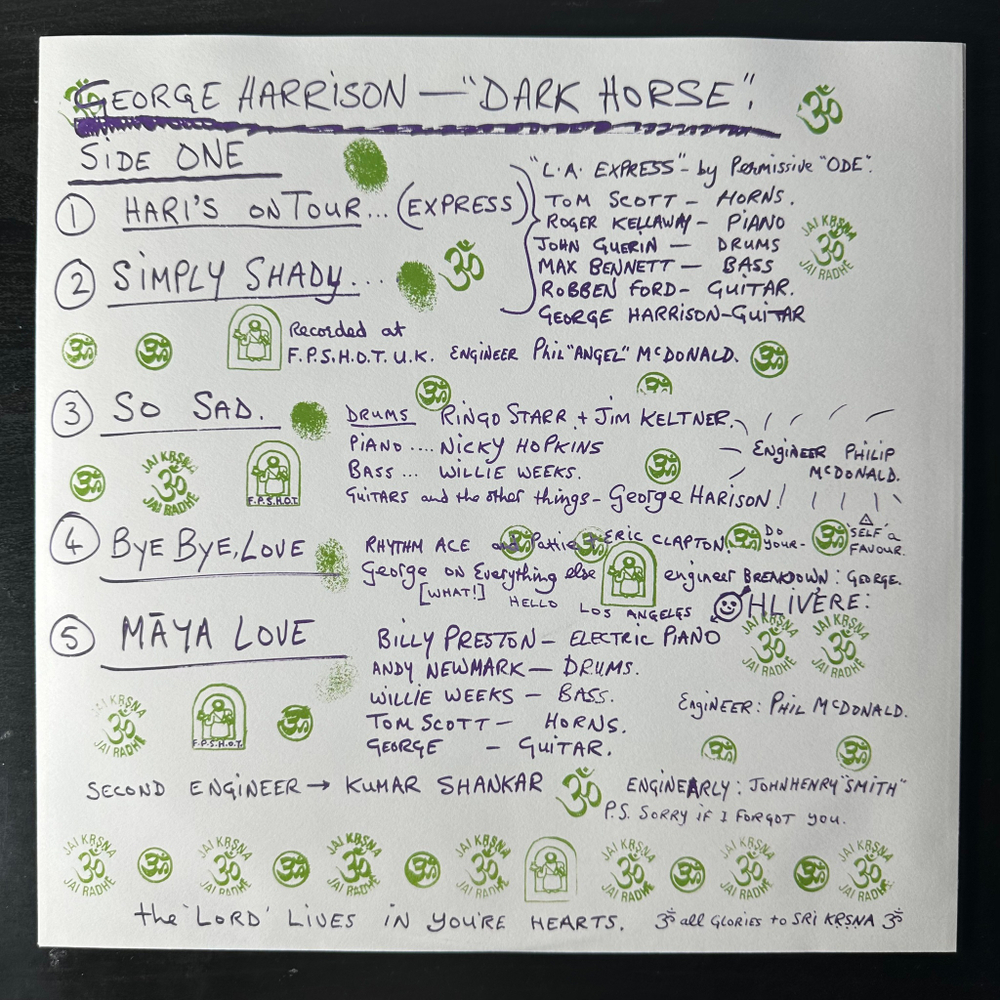 GEORGE HARRISON — "DARK HORSE".
SIDE ONE
① HARI'S ON TOUR... (EXPRESS)
"L.A. EXPRESS" - by Permissive "ODE".
TOM SCOTT — HORNS.
ROGER KELLAWAY — PIANO
JOHN GUERIN — DRUMS
MAX BENNETT — BASS
ROBBEN FORD - GUITAR.
GEORGE HARRISON - GUITAR
JAI KRSNA
ॐ
JAI RADHE
② SIMPLY SHADY...
Recorded at
F.P.S.H.O.T. U.K. ENGINEER Phil "ANGEL" McDONALD.
③ SO SAD.
DRUMS RINGO STARR + JIM KELTNER.
PIANO .... NICKY HOPKINS
BASS ... WILLIE WEEKS.
GUITARS and the other things - George HARISON!
ENGINEER PHILIP
McDONALD.
JAI KRSNA
ॐ
JAI RADHE
F.P.S.H.O.T.
④ BYE BYE, LOVE
RHYTHM ACE and Pattie + ERIC CLAPTON. DO YOUR- SELF a FAVOUR.
George on Everything else engineer BREAKDOWN: GEORGE.
[WHAT!] HELLO LOS ANGELES OHLIVERE:
⑤ MĀYA LOVE
BILLY PRESTON — ELECTRIC PIANO
ANDY NEWMARK — DRUMS.
WILLIE WEEKS — BASS.
TOM SCOTT — HORNS.
GEORGE - GUITAR.
JAI KRSNA ॐ JAI RADHE
JAI KRSNA ॐ JAI RADHE
Engineer: PHIL McDONALD.
JAI KRSNA
ॐ
JAI RADHE
F.P.S.H.O.T.
SECOND ENGINEER → KUMAR SHANKAR ॐ
ENGINEARLY: JOHNHENRY "SMITH"
P.S. SORRY IF I FORGOT YOU.
JAI KRSNA ॐ JAI RADHE ॐ JAI KRSNA ॐ JAI RADHE ॐ JAI KRSNA ॐ JAI RADHE ॐ JAI KRSNA ॐ JAI RADHE
JAI KRSNA ॐ JAI RADHE ॐ JAI KRSNA ॐ JAI RADHE ॐ JAI KRSNA ॐ JAI RADHE
the 'LORD' LIVES IN YOU'RE HEARTS. ॐ all GLORIES to SRI KRSNA ॐ